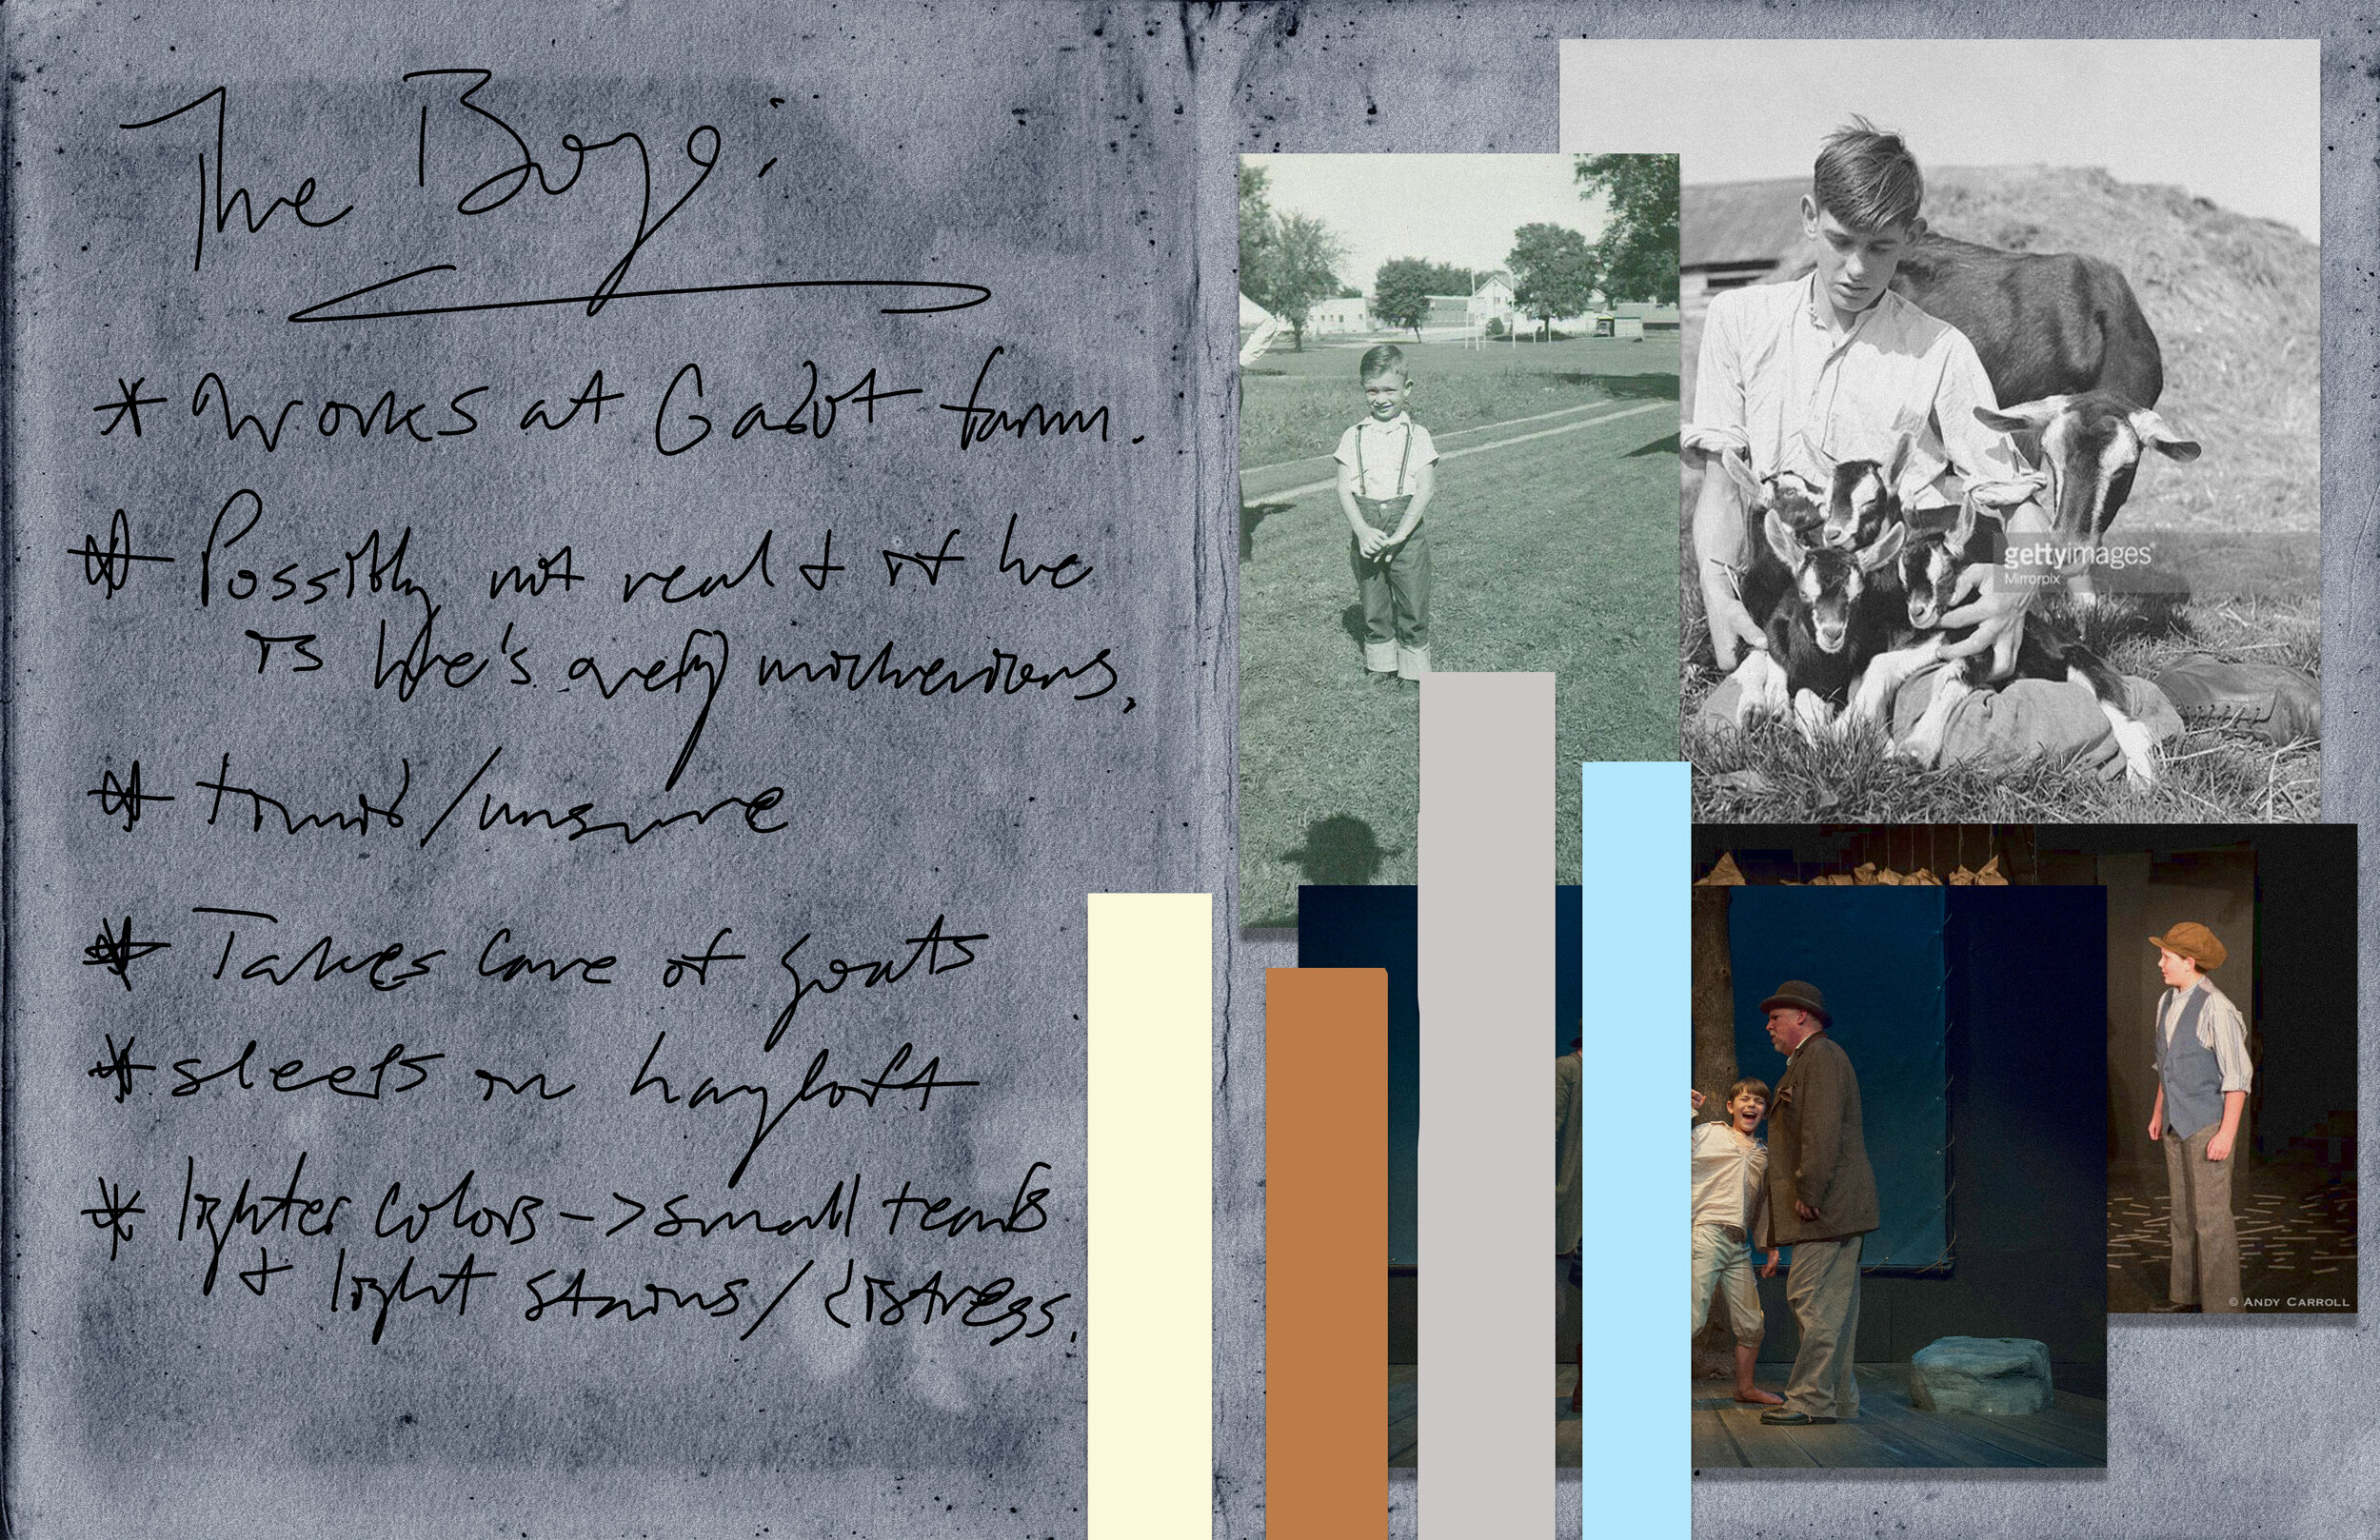 The Boy:
* Works at Gabot farm.
* Possibly not real & if he
is he's very mischevious.
* timid/unsure
* Takes care of goats
* sleeps in hayloft
* lighter colors -> small tears
& light stains/distress.
gettyimages®
Mirrorpix
© ANDY CARROLL